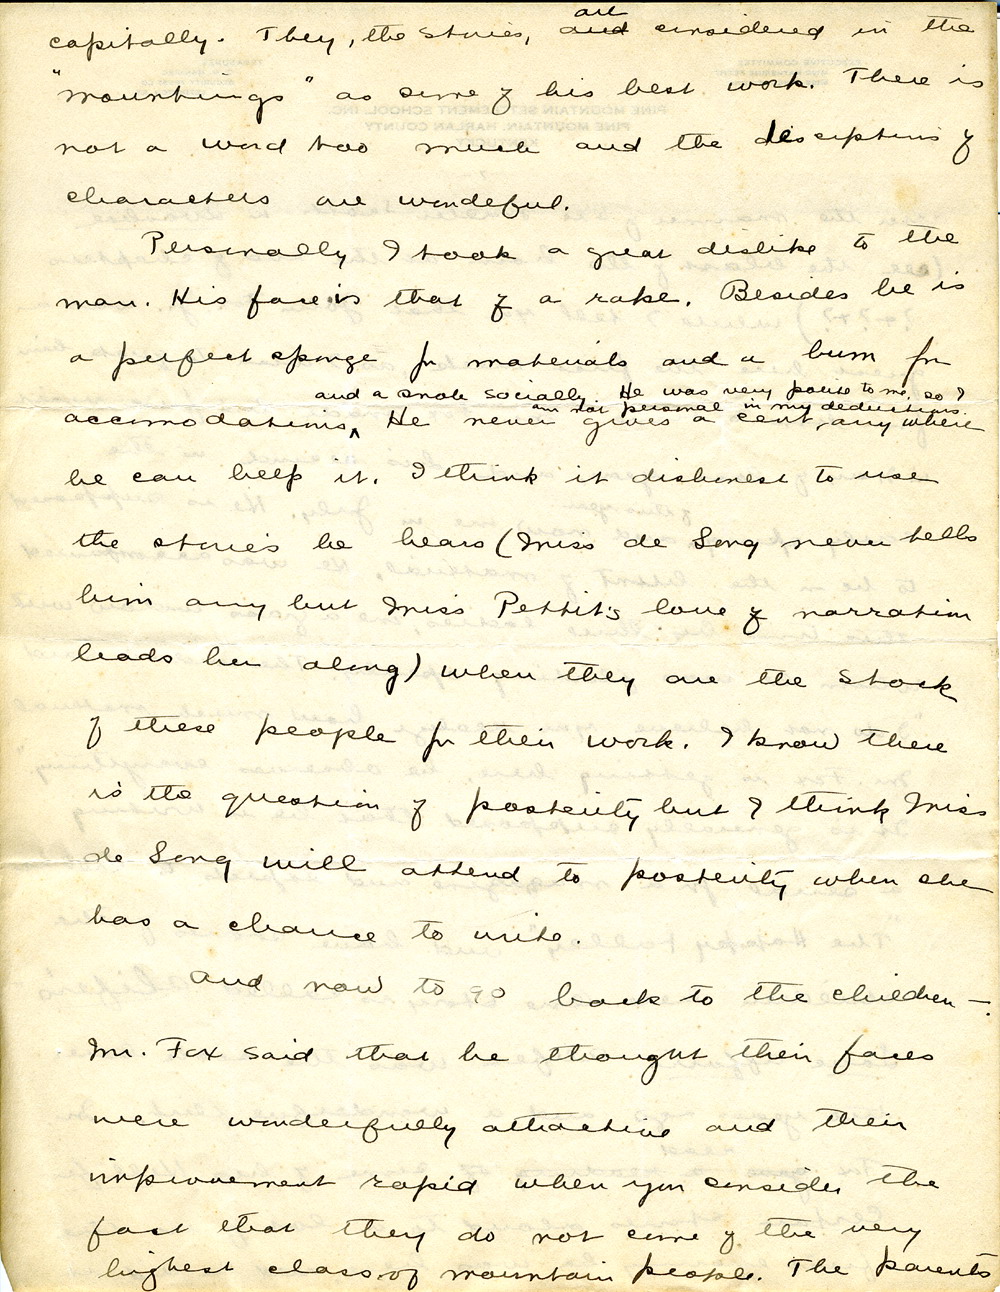 capitally. They, the stories, are considered in the
"mountings" as some of his best work. There is
not a word too much and the descriptions of
characters are wondeful.
Personally I took a great dislike to the
man. His face is that of a rake. Besides he is
a perfect sponge for materials and a bum for
and a snob socially. He was very polite to me, so I
am not personal in my deductions.
accomodations, He never gives a cent, any where
he can help it. I think it dishonest to use
the stories he hears (Miss de Long never tells
him any but Miss Pettit's love of narration
leads her along) when they are the stock
of these people for their work. I know there
is the question of posterity but I think Miss
de Long will attend to posterity when she
has a chance to write.
And now to go back to the children—.
Mr. Fox said that he thought their faces
were wonderfully attractive and their
improvement rapid when you consider the
fact that they do not come of the very
highest class of mountain people. The parents